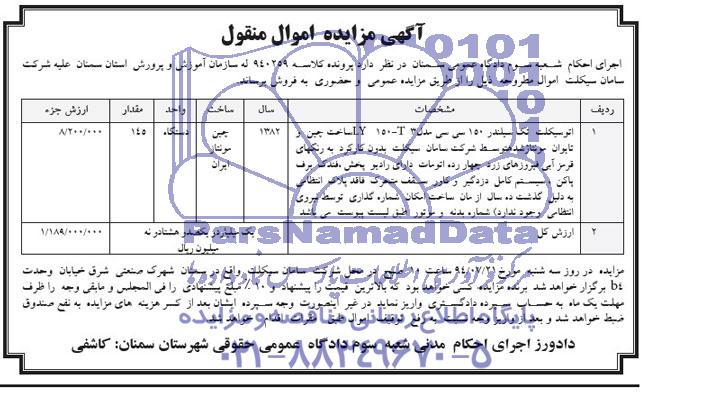 آگهی مزایده اموال منقول
اجرای احکام شعبه سوم دادگاه عمومی سمنان در نظر دارد پرونده کلاسه ۹۴۰۲۵۹ له سازمان آموزش و پرورش استان سمنان علیه شرکت
سامان سیکلت اموال مطروحه ذیل را از طریق مزایده عمومی و حضوری به فروش برساند.
ردیف مشخصات سال ساخت واحد مقدار ارزش جزء
۱ اتوسیکلت تک سیلندر ۱۵۰ سی سی مدل LY ۱۵۰-T۳ ساخت چین و ۱۳۸۲ چین دستگاه ۱۴۵ ۸/۲۰۰/۰۰۰
تایران مونتاژ شده توسط شرکت سامان سیکلت بدون کارکرد به رنگهای مونتاژ
قرمز آبی فیروزهای زرد چهار رده اتومات دارای رادیو پخش، فندک برف ایران
پاکن و سیستم کامل دزدگیر و کاور سقف متحرک فاقد پلاک انتظامی
به دلیل گذشت ده سال از مان ساخت امکان شماره گذاری توسط نیروی
انتظامی وجود ندارد) شماره بدنه و موتور طبق لیست پیوست می باشد
۲ ارزش کل یک میلیارد و یکصد و هشتاد و نه ۱/۱۸۹/۰۰۰/۰۰۰
میلیون ریال
مزایده در روز سه شنبه مورخ ۹۴/۰۷/۲۱ ساعت ۱۰ صبح در محل شرکت سامان سیکلت واقع در سمنان شهرک صنعتی شرق خیابان وحدت
b۴ برگزار خواهد شد برنده مزایده کسی خواهد بود که بالاترین قیمت را پیشنهاد و ۱۰٪ مبلغ پیشنهادی را فی المجلس و مابقی وجه را ظرف
مهلت یک ماه به حساب سپرده دادگستری واریز نماید در غیر اینصورت وجه سپرده ایشان بعد از کسر هزینه های مزایده به نفع صندوق
ضبط خواهد شد و بعد از واریز وجه نسبت به رفع توقیف اموال طبق مقررات اقدام خواهد شد.
دادورز اجرای احکام مدنی شعبه سوم دادگاه عمومی حقوقی شهرستان سمنان: کاشفی
ParsNamadData
پایگاه اطلاع رسانی مناقصه و مزایده
۰۲۱-۸۸۳۴۹۶۷۰-۵